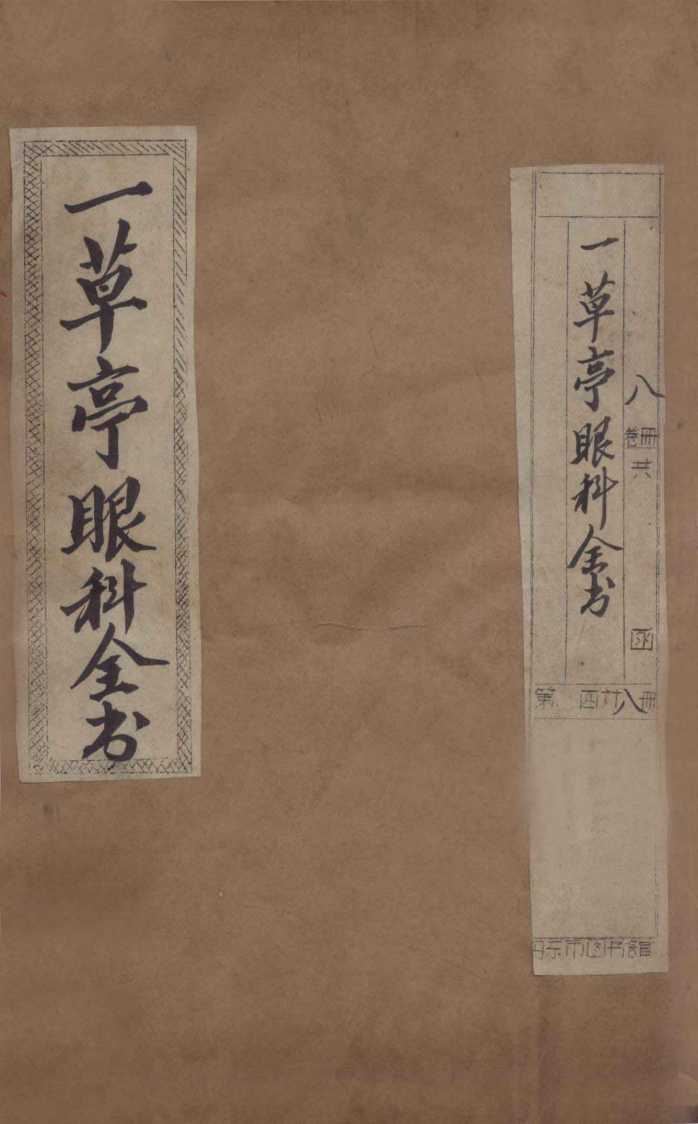 一草亭眼科全书
一草亭眼科全书
八
卷冊共
函
第 函共八冊
市图书館